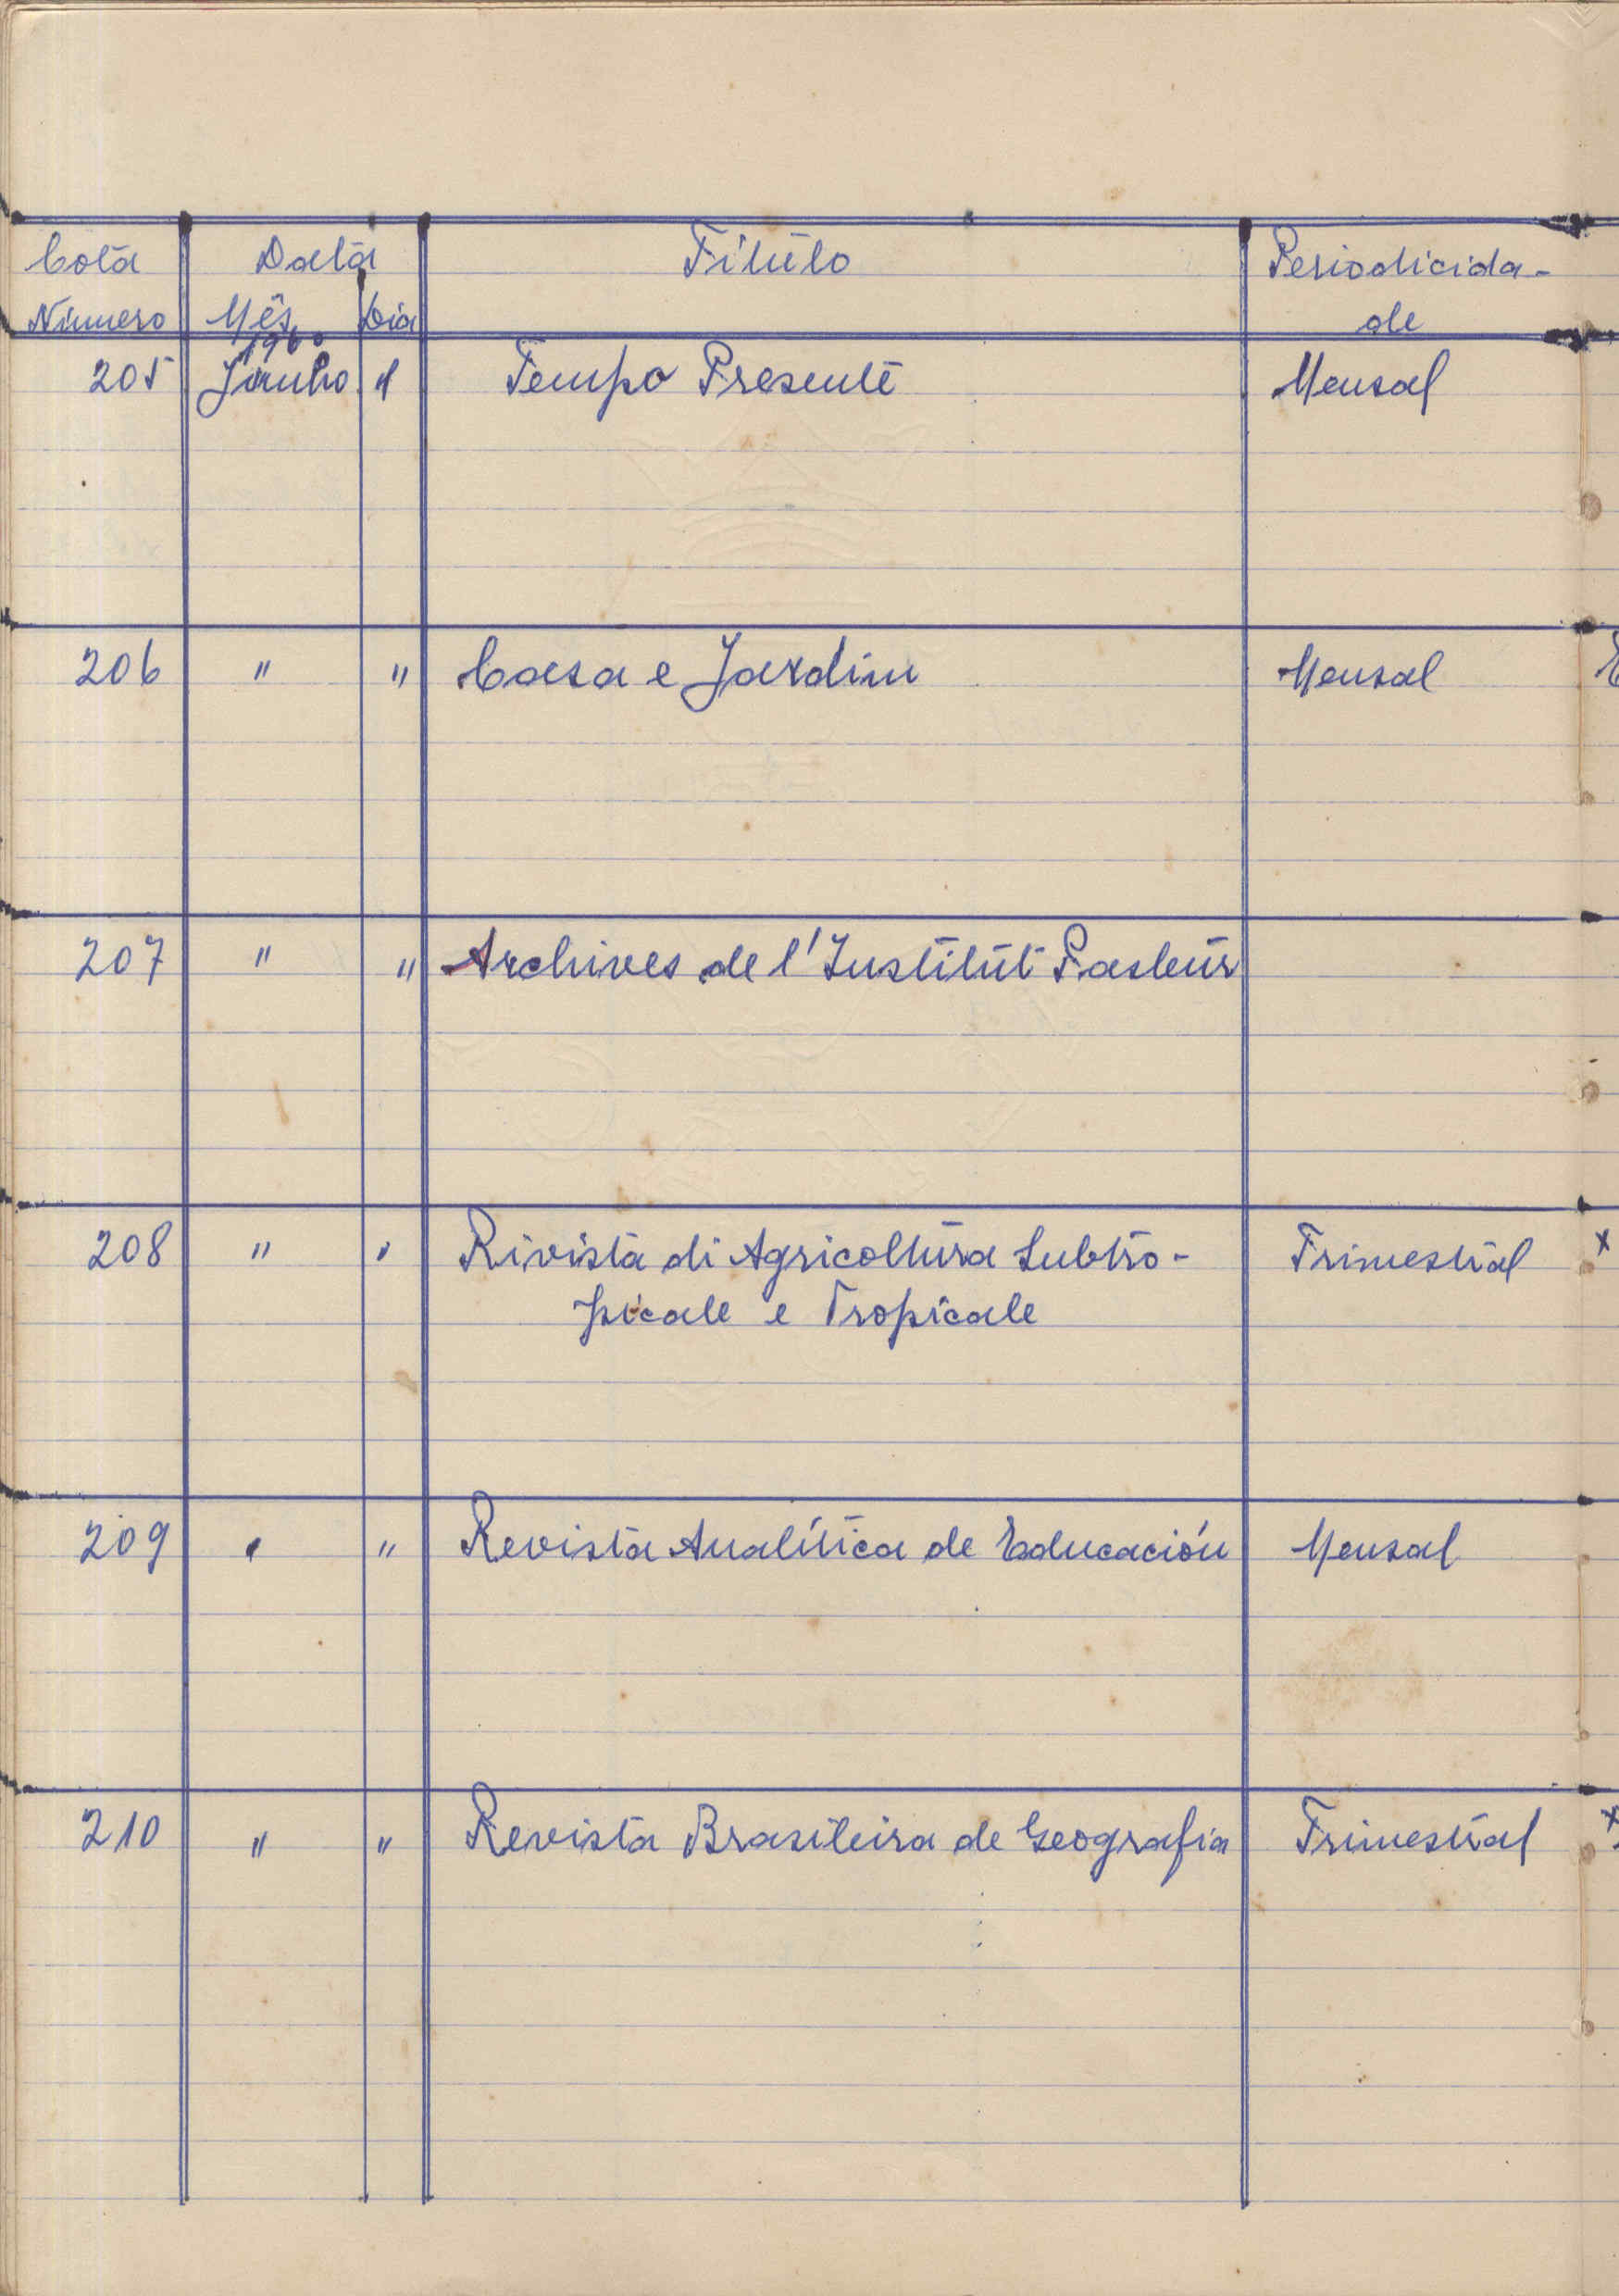 Cota Data Título Periodicida-
Número Mês Dia de
1960
205 Junho 1 Tempo Presente Mensal
206 " " Casa e Jardim Mensal
207 " " Archives de l'Institut Pasteur
208 " " Rivista di Agricoltura Subtro- Trimestral x
picale e Tropicale
209 " " Revista Analítica de Educación Mensal
210 " " Revista Brasileira de Geografia Trimestral x